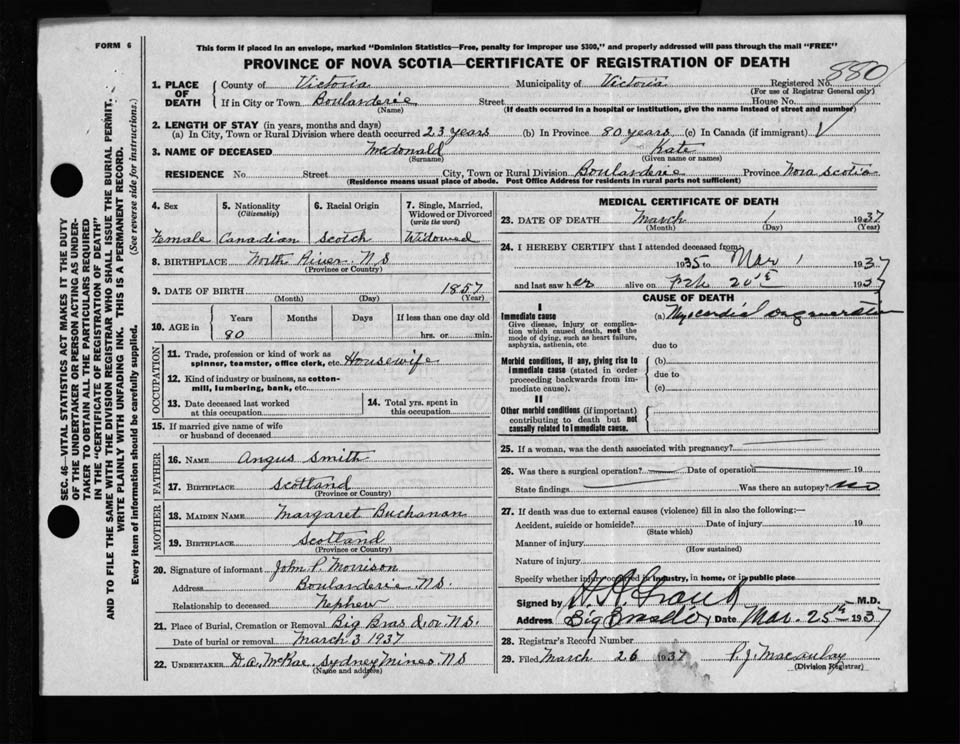 FORM 6
This form if placed in an envelope, marked "Dominion Statistics—Free, penalty for improper use $300," and properly addressed will pass through the mail "FREE"
PROVINCE OF NOVA SCOTIA—CERTIFICATE OF REGISTRATION OF DEATH
880
1. PLACE OF DEATH
County of Victoria Municipality of Victoria Registered No.
(For use of Registrar General only)
If in City or Town Boulanderie Street House No.
(Name) (If death occurred in a hospital or institution, give the name instead of street and number)
2. LENGTH OF STAY (in years, months and days)
(a) In City, Town or Rural Division where death occurred 23 years (b) In Province 80 years (c) In Canada (if immigrant)
3. NAME OF DECEASED Mcdonald Kate
(Surname) (Given name or names)
RESIDENCE No. Street City, Town or Rural Division Boulanderie Province Nova Scotia
(Residence means usual place of abode. Post Office Address for residents in rural parts not sufficient)
4. Sex 5. Nationality (Citizenship) 6. Racial Origin 7. Single, Married, Widowed or Divorced (write the word)
Female Canadian Scotch Widowed
8. BIRTHPLACE North River N S
(Province or Country)
9. DATE OF BIRTH 1857
(Month) (Day) (Year)
10. AGE in Years Months Days If less than one day old
80 hrs. or min.
OCCUPATION
11. Trade, profession or kind of work as spinner, teamster, office clerk, etc. Housewife
12. Kind of industry or business, as cotton-mill, lumbering, bank, etc.
13. Date deceased last worked at this occupation
14. Total yrs. spent in this occupation
15. If married give name of wife or husband of deceased
FATHER
16. NAME Angus Smith
17. BIRTHPLACE Scotland
(Province or Country)
MOTHER
18. MAIDEN NAME Margaret Buchanan
19. BIRTHPLACE Scotland
(Province or Country)
20. Signature of informant John P. Morrison
Address Boulanderie N.S.
Relationship to deceased Nephew
21. Place of Burial, Cremation or Removal Big Bras d'or N.S.
Date of burial or removal March 3 1937
22. UNDERTAKER D.A. McRae Sydney Mines N S
(Name and address)
MEDICAL CERTIFICATE OF DEATH
23. DATE OF DEATH March 1 1937
(Month) (Day) (Year)
24. I HEREBY CERTIFY that I attended deceased from
1935 to Mar 1 1937
and last saw her alive on Feb 20th 1937
CAUSE OF DEATH
I
Immediate cause
Give disease, injury or complication which caused death, not the mode of dying, such as heart failure, asphyxia, asthenia, etc.
(a) Myocardial degeneration
due to
Morbid conditions, if any, giving rise to immediate cause (stated in order proceeding backwards from immediate cause).
(b)
due to
(c)
II
Other morbid conditions (if important) contributing to death but not causally related to immediate cause.
25. If a woman, was the death associated with pregnancy?
26. Was there a surgical operation? Date of operation 19
State findings Was there an autopsy? no
27. If death was due to external causes (violence) fill in also the following:—
Accident, suicide or homicide? Date of injury 19
(State which)
Manner of injury
(How sustained)
Nature of injury
Specify whether injury occurred in industry, in home, or in public place
Signed by M.D.
Address Big Bras d'or Date Mar. 25th 1937
28. Registrar's Record Number
29. Filed March 26 1937 P. J. Macaulay
(Division Registrar)
SEC. 46—VITAL STATISTICS ACT MAKES IT THE DUTY
OF THE UNDERTAKER OR PERSON ACTING AS UNDER-
TAKER TO OBTAIN ALL THE PARTICULARS REQUIRED
IN THE "CERTIFICATE OF REGISTRATION OF DEATH"
AND TO FILE THE SAME WITH THE DIVISION REGISTRAR WHO SHALL ISSUE THE BURIAL PERMIT.
WRITE PLAINLY WITH UNFADING INK. THIS IS A PERMANENT RECORD.
Every item of information should be carefully supplied. (See reverse side for instructions.)